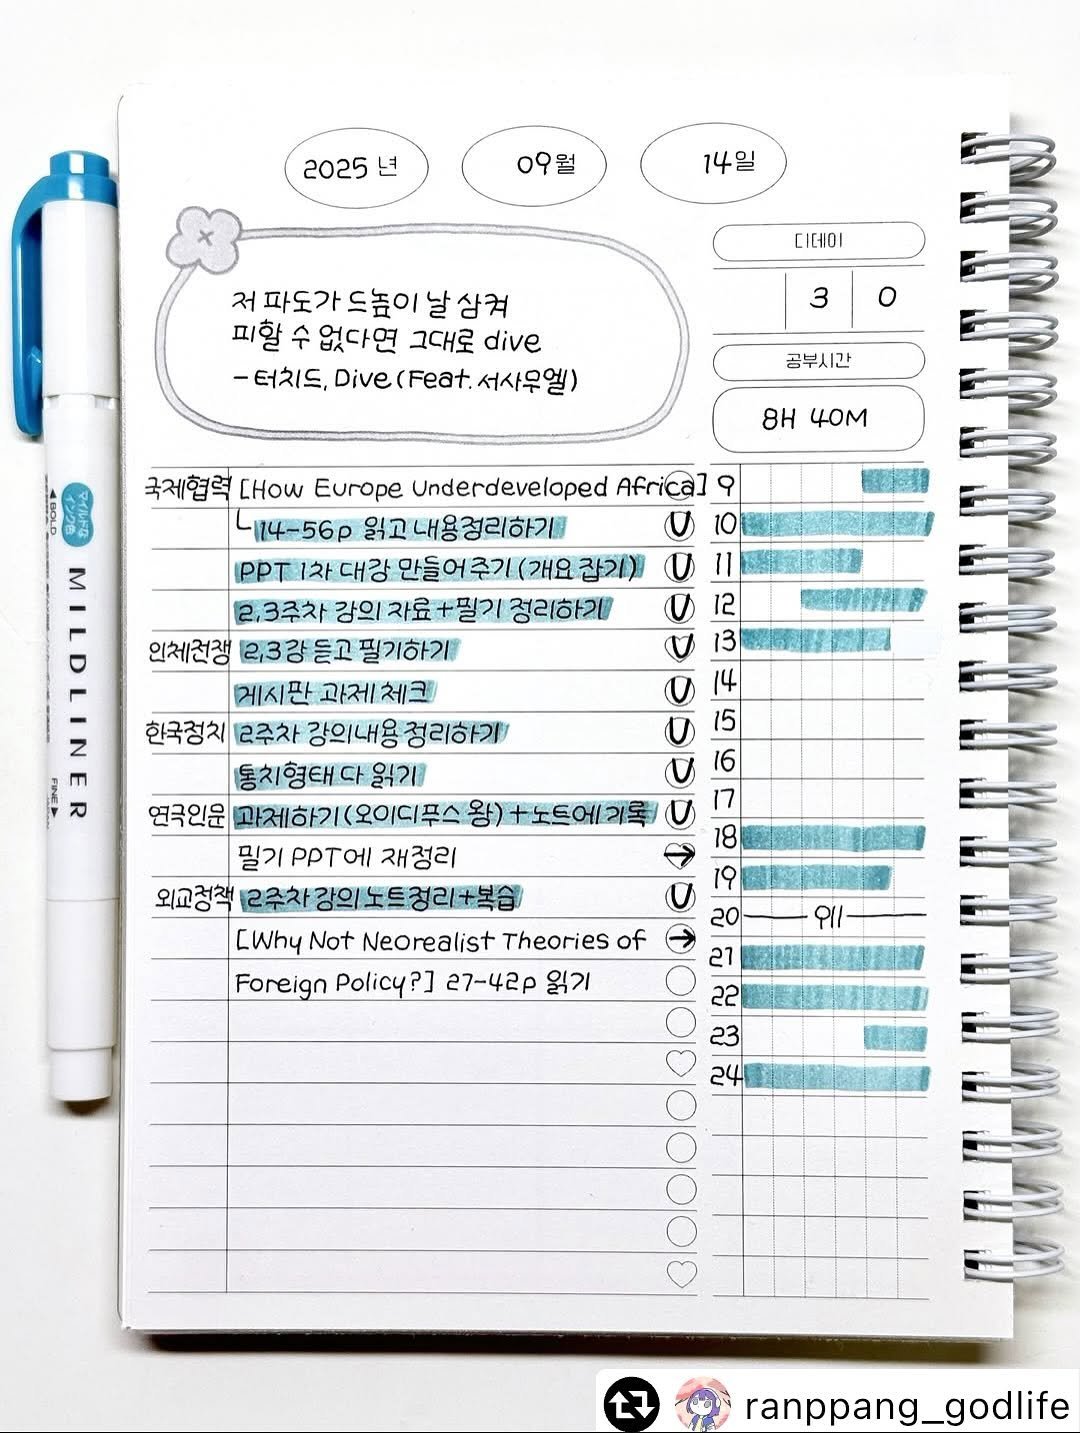 2025 년 09월 14일
디데이
3 0
저 파도가 드높이 날 삼켜
피할 수 없다면 그대로 dive
- 터치드, Dive (Feat. 서사무엘)
공부시간
8H 40M
국제협력 [How Europe Underdeveloped Africa]
14-56p 읽고 내용정리하기
PPT 1차 대강 만들어주기 (개요 잡기)
2,3주차 강의 자료+필기 정리하기
인체전쟁 2,3강 듣고 필기하기
게시판 과제 체크
한국정치 2주차 강의내용 정리하기
통치형태 다 읽기
연극인문 과제하기 (오이디푸스 왕) + 노트에 기록
필기 PPT에 재정리
외교정책 2주차 강의 노트정리+복습
[Why Not Neorealist Theories of
Foreign Policy?] 27-42p 읽기
9
10
11
12
13
14
15
16
17
18
19
20
21
22
23
24
マイルドな
インク色
◀BOLD
MILDLINER
FINE▶
ranppang_godlife